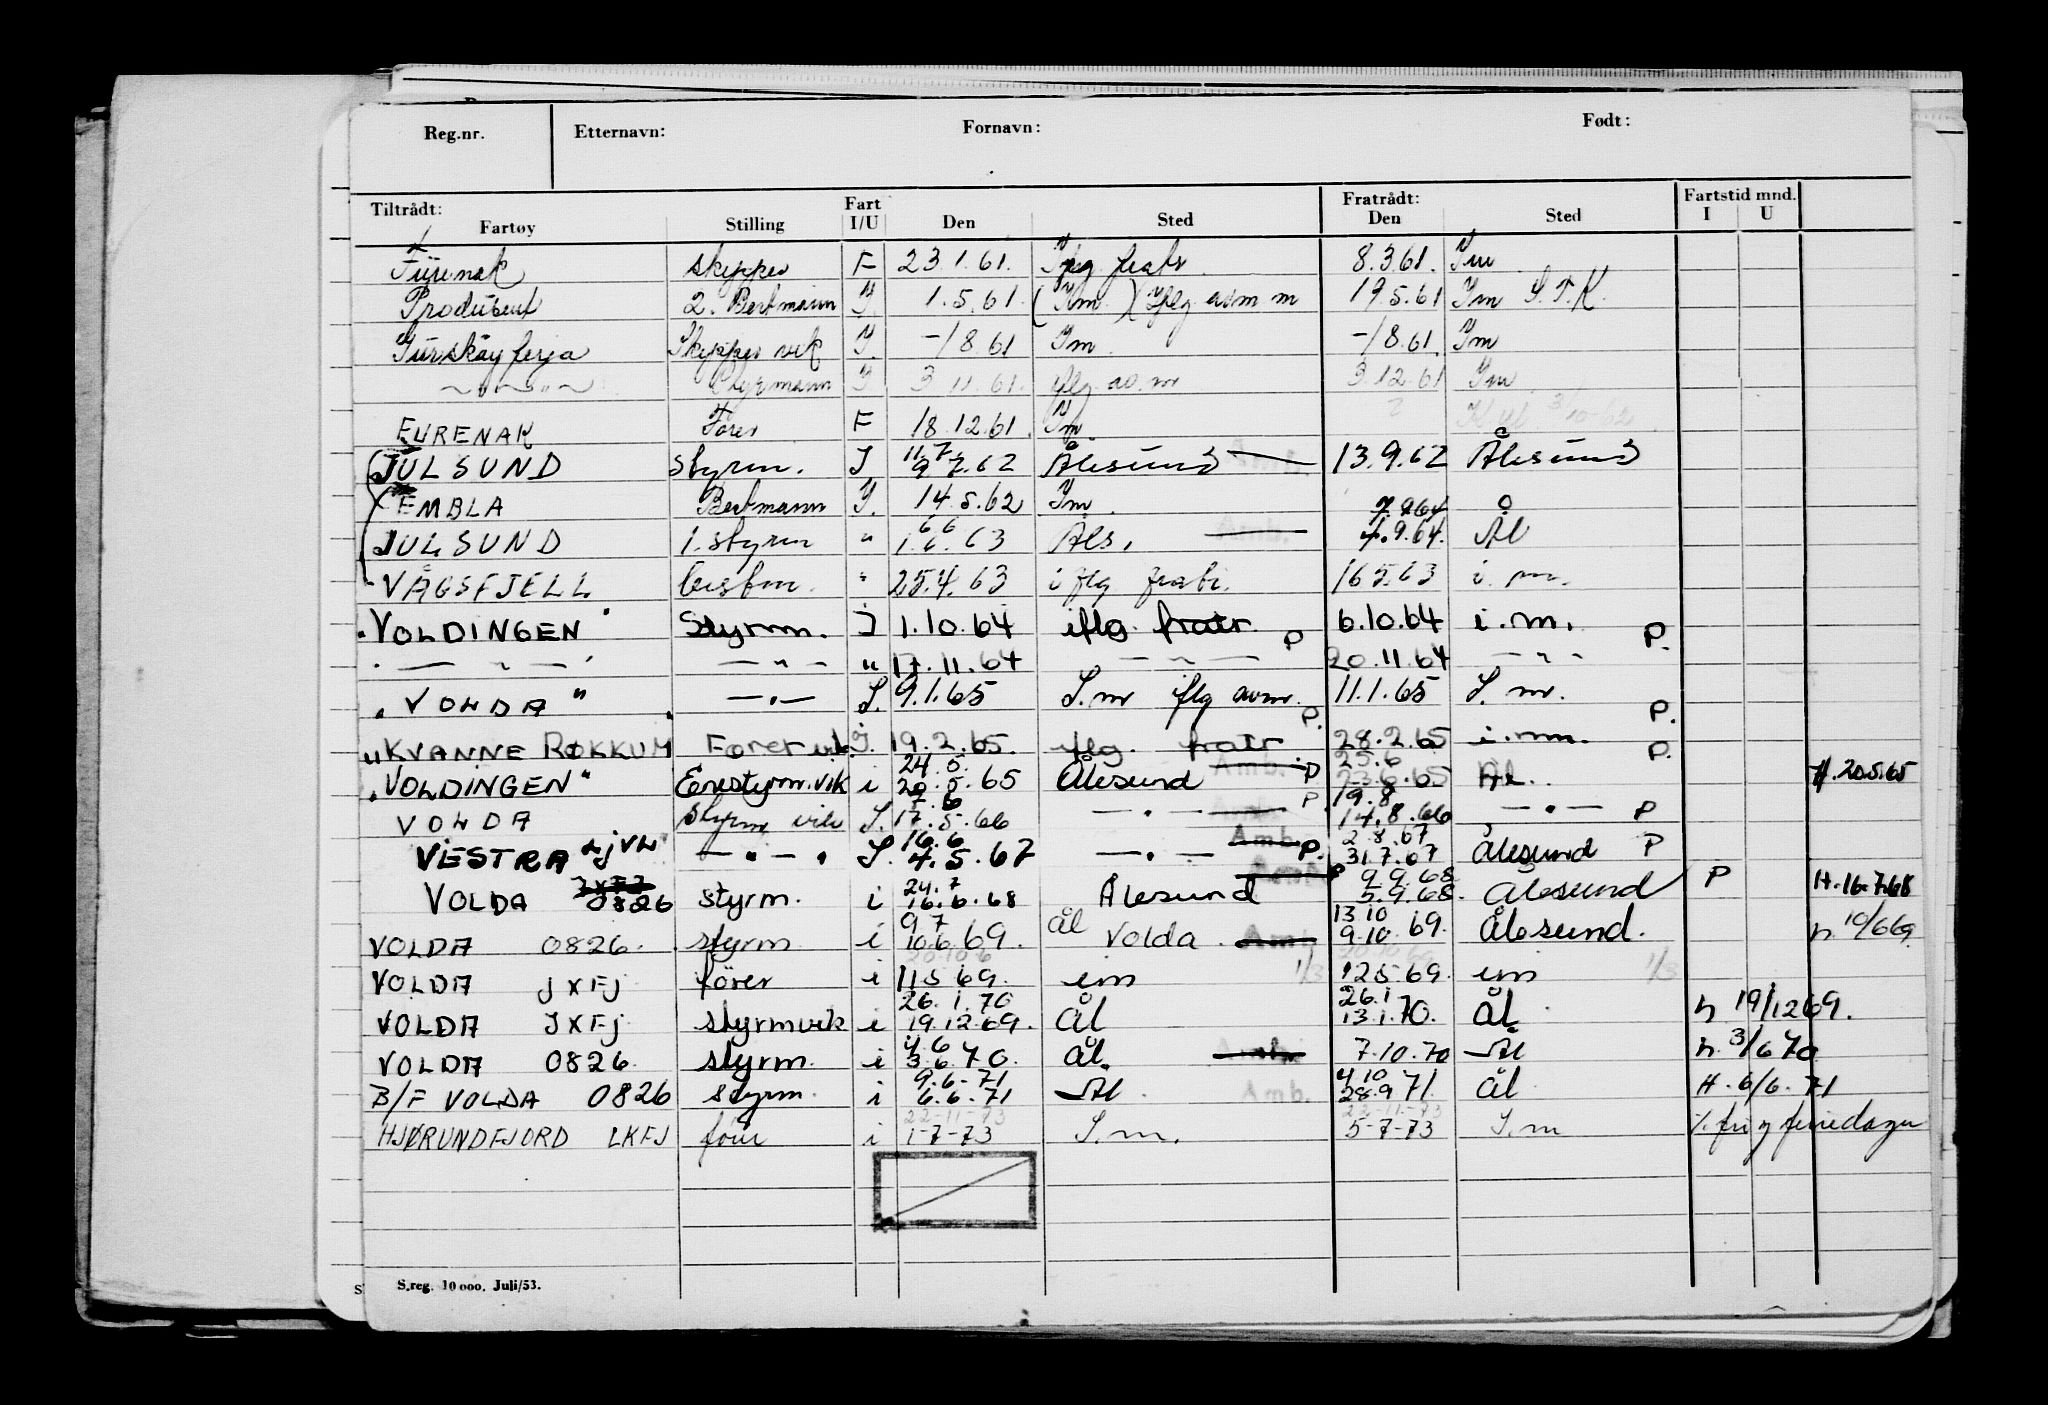 Reg.nr. Etternavn: Fornavn: Født:
Tiltrådt: Fratrådt: Fartstid mnd.
Fartøy Stilling Fart I/U Den Sted Den Sted I U
Furenak skipper F 23.1.61. iflg fratr 8.3.61. Im
Produsent 2. Bestmann I. 1.5.61. (Im.) (Iflg avm m 19.5.61 Im S.T.K.
Gurskøy ferja Skipper vik I. -/8.61 Im. -/8.61. Im
~"~"~ Styrmann I 3.11.61. iflg av.m 3.12.61 Im
FURENAK Fører F 18.12.61. Im. 3/10-62
JULSUND styrm. I 11.7. 9.7.62 Ålesund Amb. 13.9.62 Ålesund
EMBLA Bestmann I. 14.5.62 Im. 7.9.64 Å
JULSUND 1. styrm " 6.6 1.6.63 Åls. Amb. 4.9.64. Ål
VÅGSFJELL bestm. " 25.4.63 iflg fratr. 16.5.63 i.m.
"VOLDINGEN" Styrm. I 1.10.64 iflg. fratr. P 6.10.64 i.m. P.
— " — — " — " 17.11.64 — " — 20.11.64 — " —
"VOLDA" — " — I. 9.1.65 I.m iflg avm. P. 11.1.65 I.m. P.
"KVANNE RØKKUM" Fører vik. I. 19.2.65. iflg. fratr 28.2.65 i.m. P.
"VOLDINGEN" Enestyrm.vik i 24.5. 20.5.65 Ålesund Amb. P 25.6 23.6.65 Ål. H. 20.5.65
VOLDA styrm vik I. 7.6 17.5.66 — " — P. 19.8. 14.8.66 — " — P
VESTRA LJVW — " — " I. 16.6 4.5.67 — " — Amb. P. 2.8.67 31.7.67 Ålesund P
VOLDA JXFJ 0826 styrm. i 24.7 16.6.68 Ålesund Amb. P 9.9.68 5.9.68. Ålesund P H. 16.7.68
VOLDA 0826. styrm i 9 7 10.6.69. Ål Volda Amb. 13 10 9.10.69. Ålesund. h. 10/6 69.
VOLDA JXFJ fører i 11.5 69. im 1/3 12.5.69. im 1/3
VOLDA JXFJ styrmvik i 26.1.70 19.12.69. Ål 26.1 13.1.70. Ål h 19/12 69.
VOLDA 0826. styrm. i 4.6 3.6.70. Ål. Amb. 7.10.70 Ål h. 3/6 70
B/F VOLDA 0826 styrm. i 9.6.-71 6.6.71 Ål Amb. 4 10 28.9 71. Ål H. 6/6.71
HJØRUNDFJORD LKFJ fører i 22-11-73 1-7-73 I.m. 22-11-73 5-7-73 I.m
S.reg. 10 000. Juli/53.